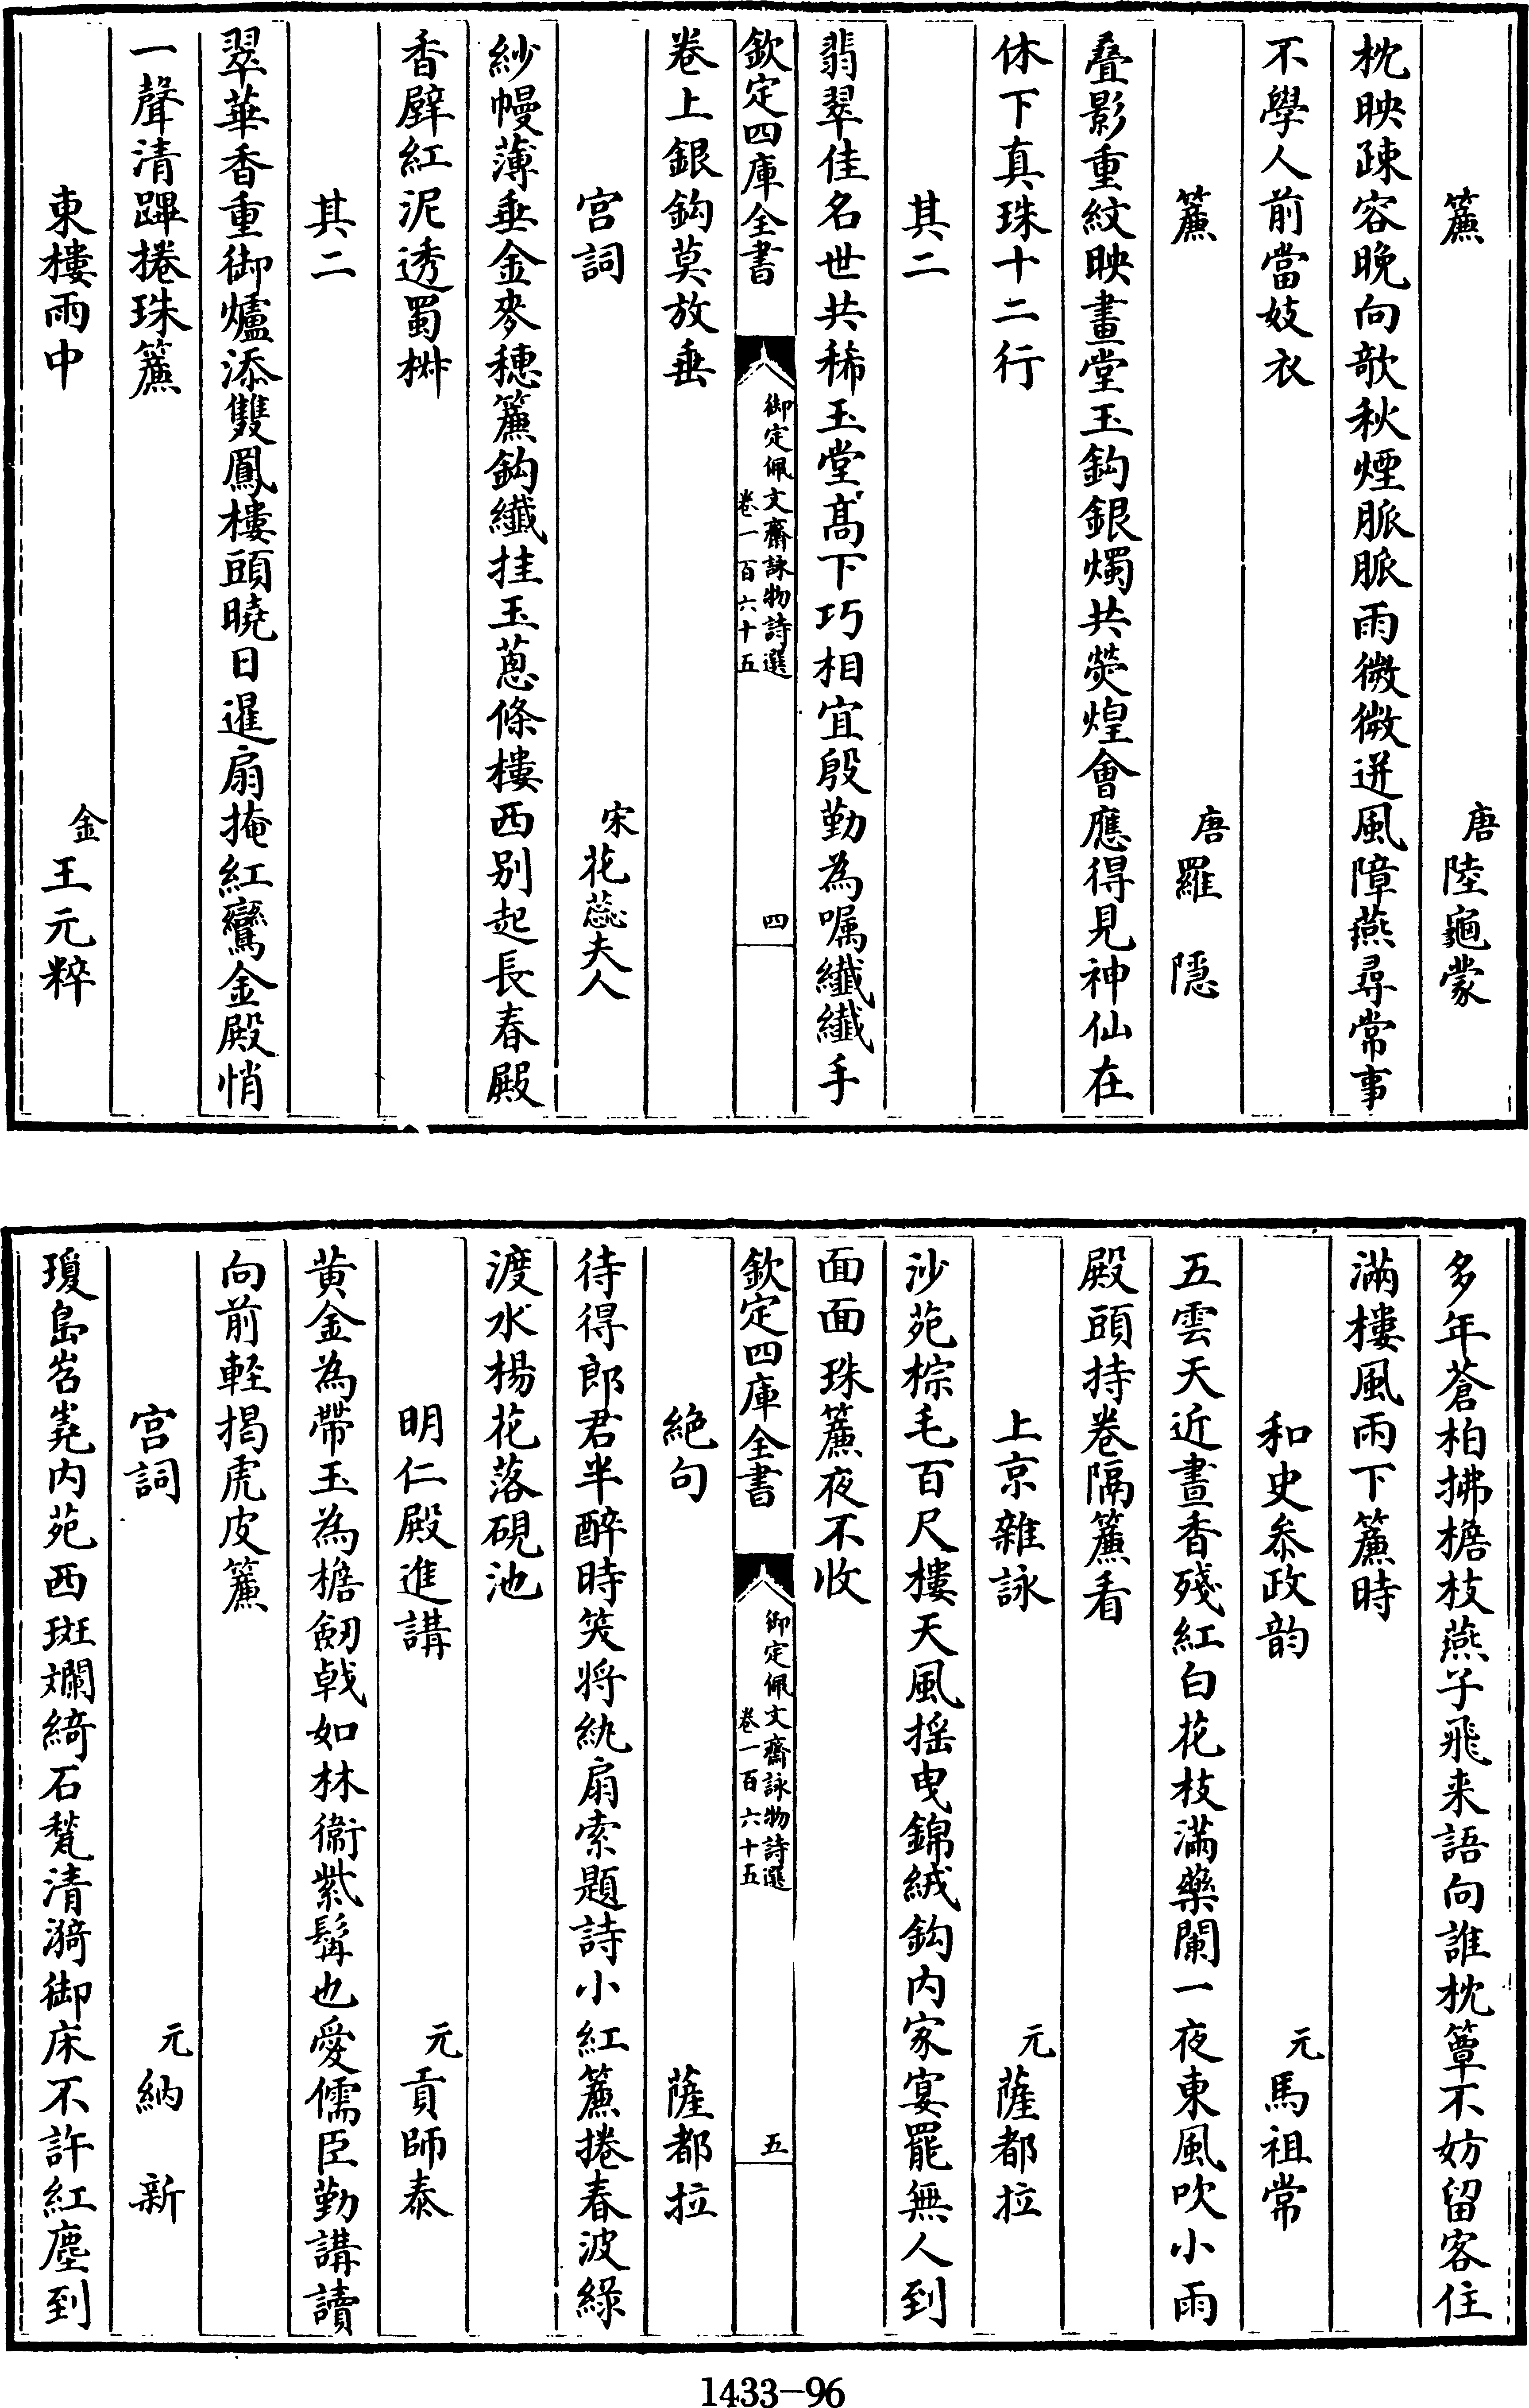 簾　唐陸龜蒙
枕映疎容晚向欹秋煙脈脈雨微微迸風障燕尋常事
不學人前當妓衣
簾　唐羅隱
叠影重紋映畫堂玉鈎銀燭共熒煌會應得見神仙在
休下真珠十二行
其二
翡翠佳名世共稀玉堂髙下巧相宜殷勤為嘱纖纖手
卷上銀鈎莫放垂
宫詞　宋花蕊夫人
紗幔薄垂金麥穗簾鈎纖挂玉蔥條樓西别起長春殿
香壁紅泥透蜀椒
其二
翠華香重御爐添雙鳳樓頭曉日暹扇掩紅鸞金殿悄
一聲清蹕捲珠簾
東樓雨中　金王元粹
欽定四庫全書　御定佩文齋詠物詩選　卷一百六十五　四
多年蒼柏拂檐枝燕子飛来語向誰枕簟不妨留客住
滿樓風雨下簾時
和史叅政韵　元馬祖常
五雲天近晝香殘紅白花枝滿藥闌一夜東風吹小雨
殿頭持卷隔簾看
上京雜詠　元薩都拉
沙苑棕毛百尺樓天風摇曳錦絨鈎内家宴罷無人到
面面珠簾夜不收
絶句　薩都拉
待得郎君半醉時笑将紈扇索題詩小紅簾捲春波綠
渡水楊花落硯池
明仁殿進講　元貢師泰
黄金為帶玉為檐劒戟如林衞紫髯也愛儒臣勤講讀
向前輕揭虎皮簾
宫詞　元納新
瓊島岧嶤内苑西斑斕綺石甃清漪御床不許紅塵到
欽定四庫全書　御定佩文齋詠物詩選　卷一百六十五　五
1433-96